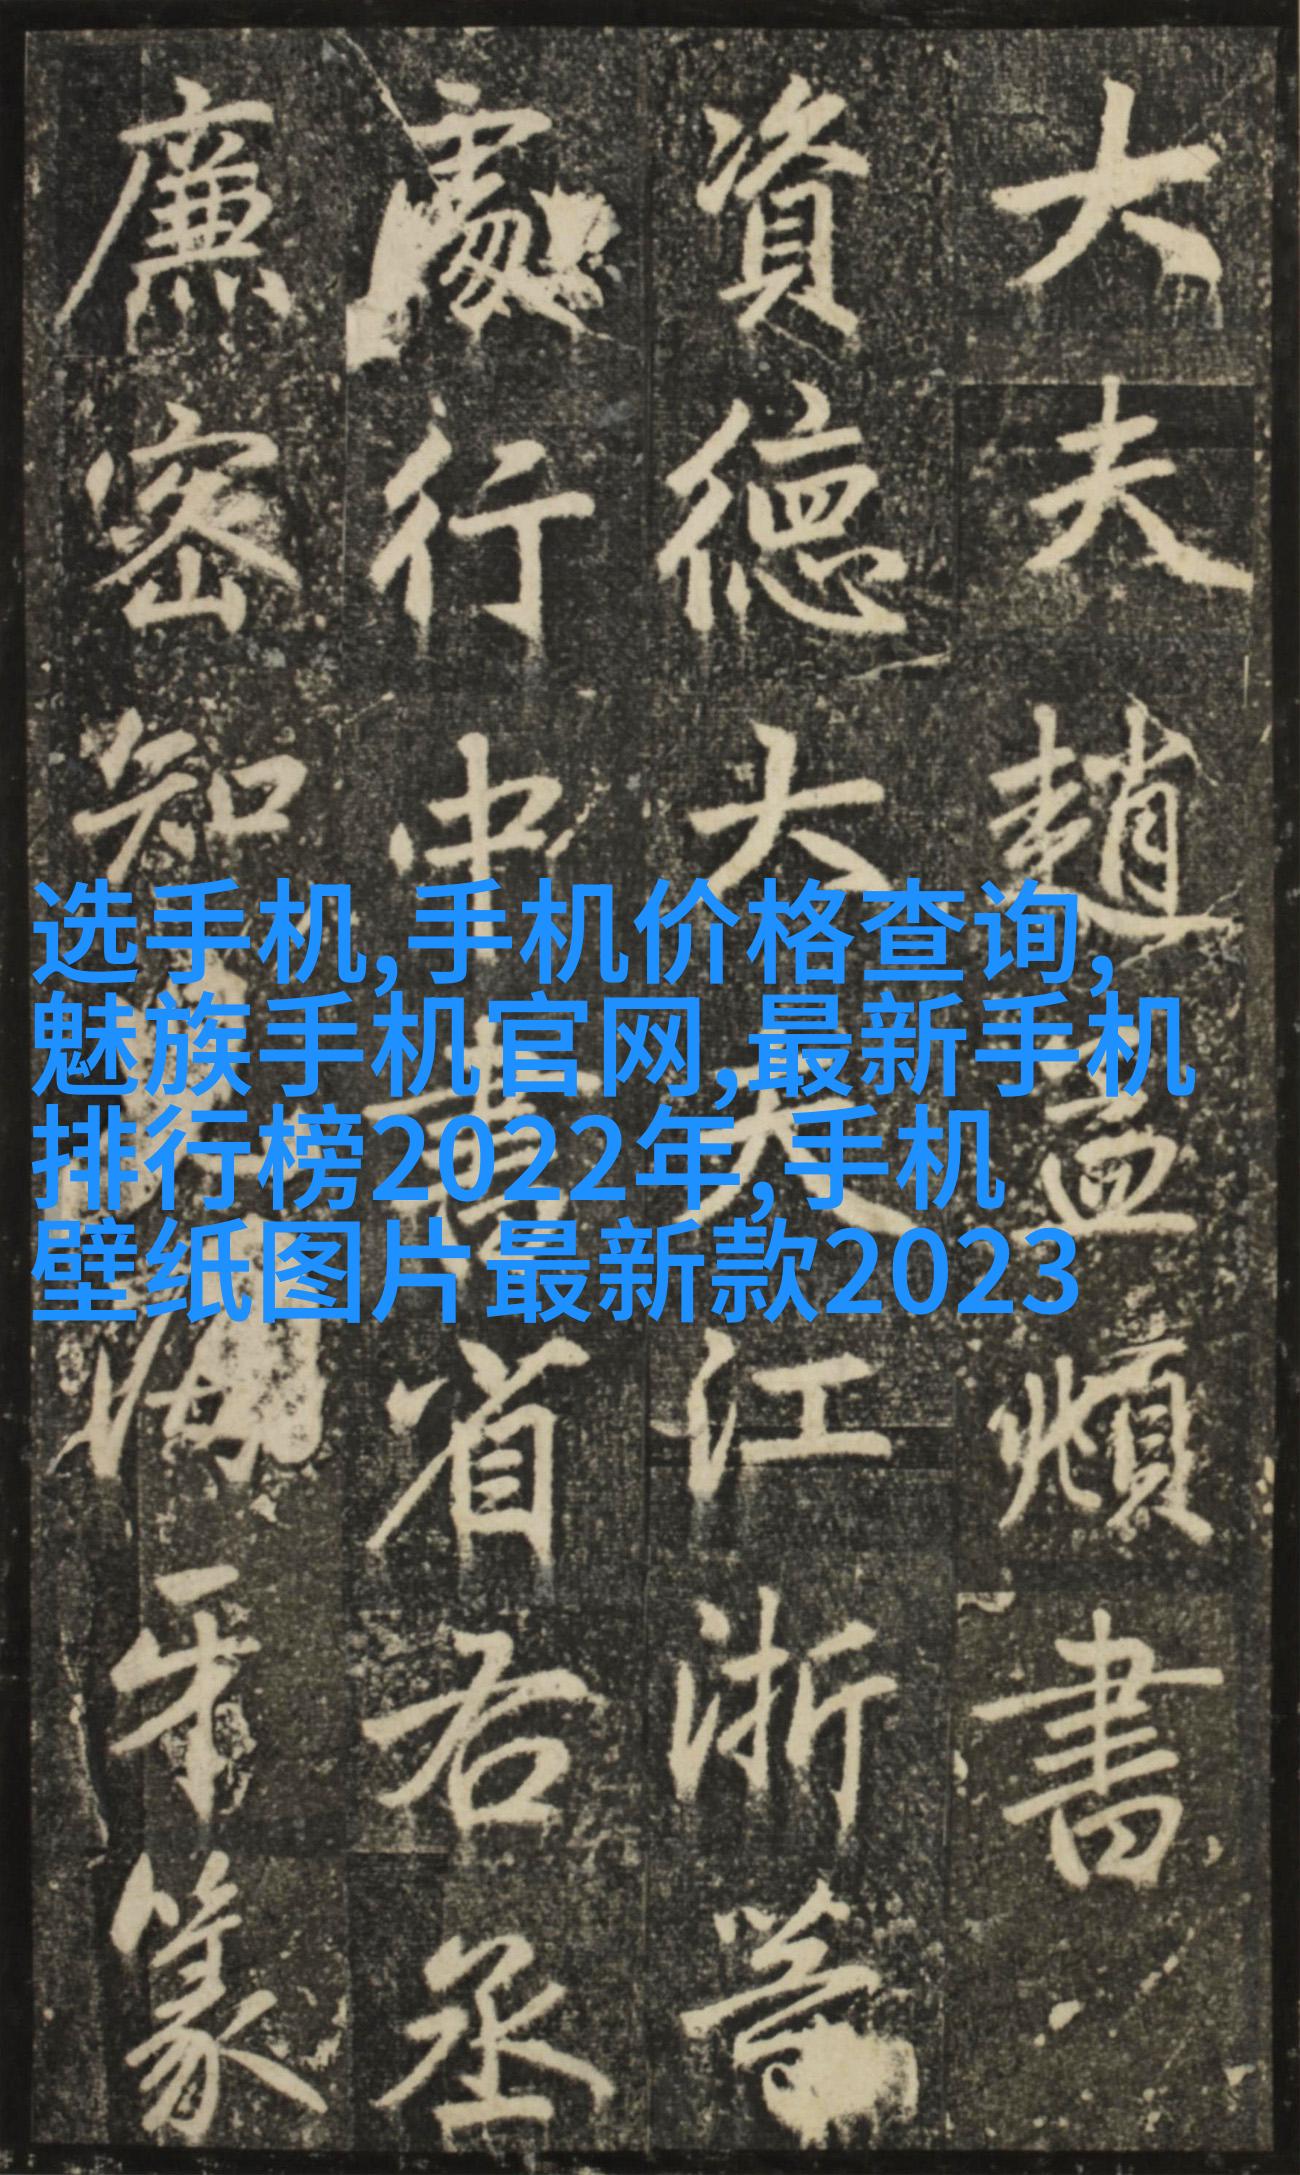 大夫趙孟頫書
資德大夫江浙等
處行中書省右丞
廉密知
牙篆
选手机,手机价格查询,
魅族手机官网,最新手机
排行榜2022年,手机
壁纸图片最新款2023